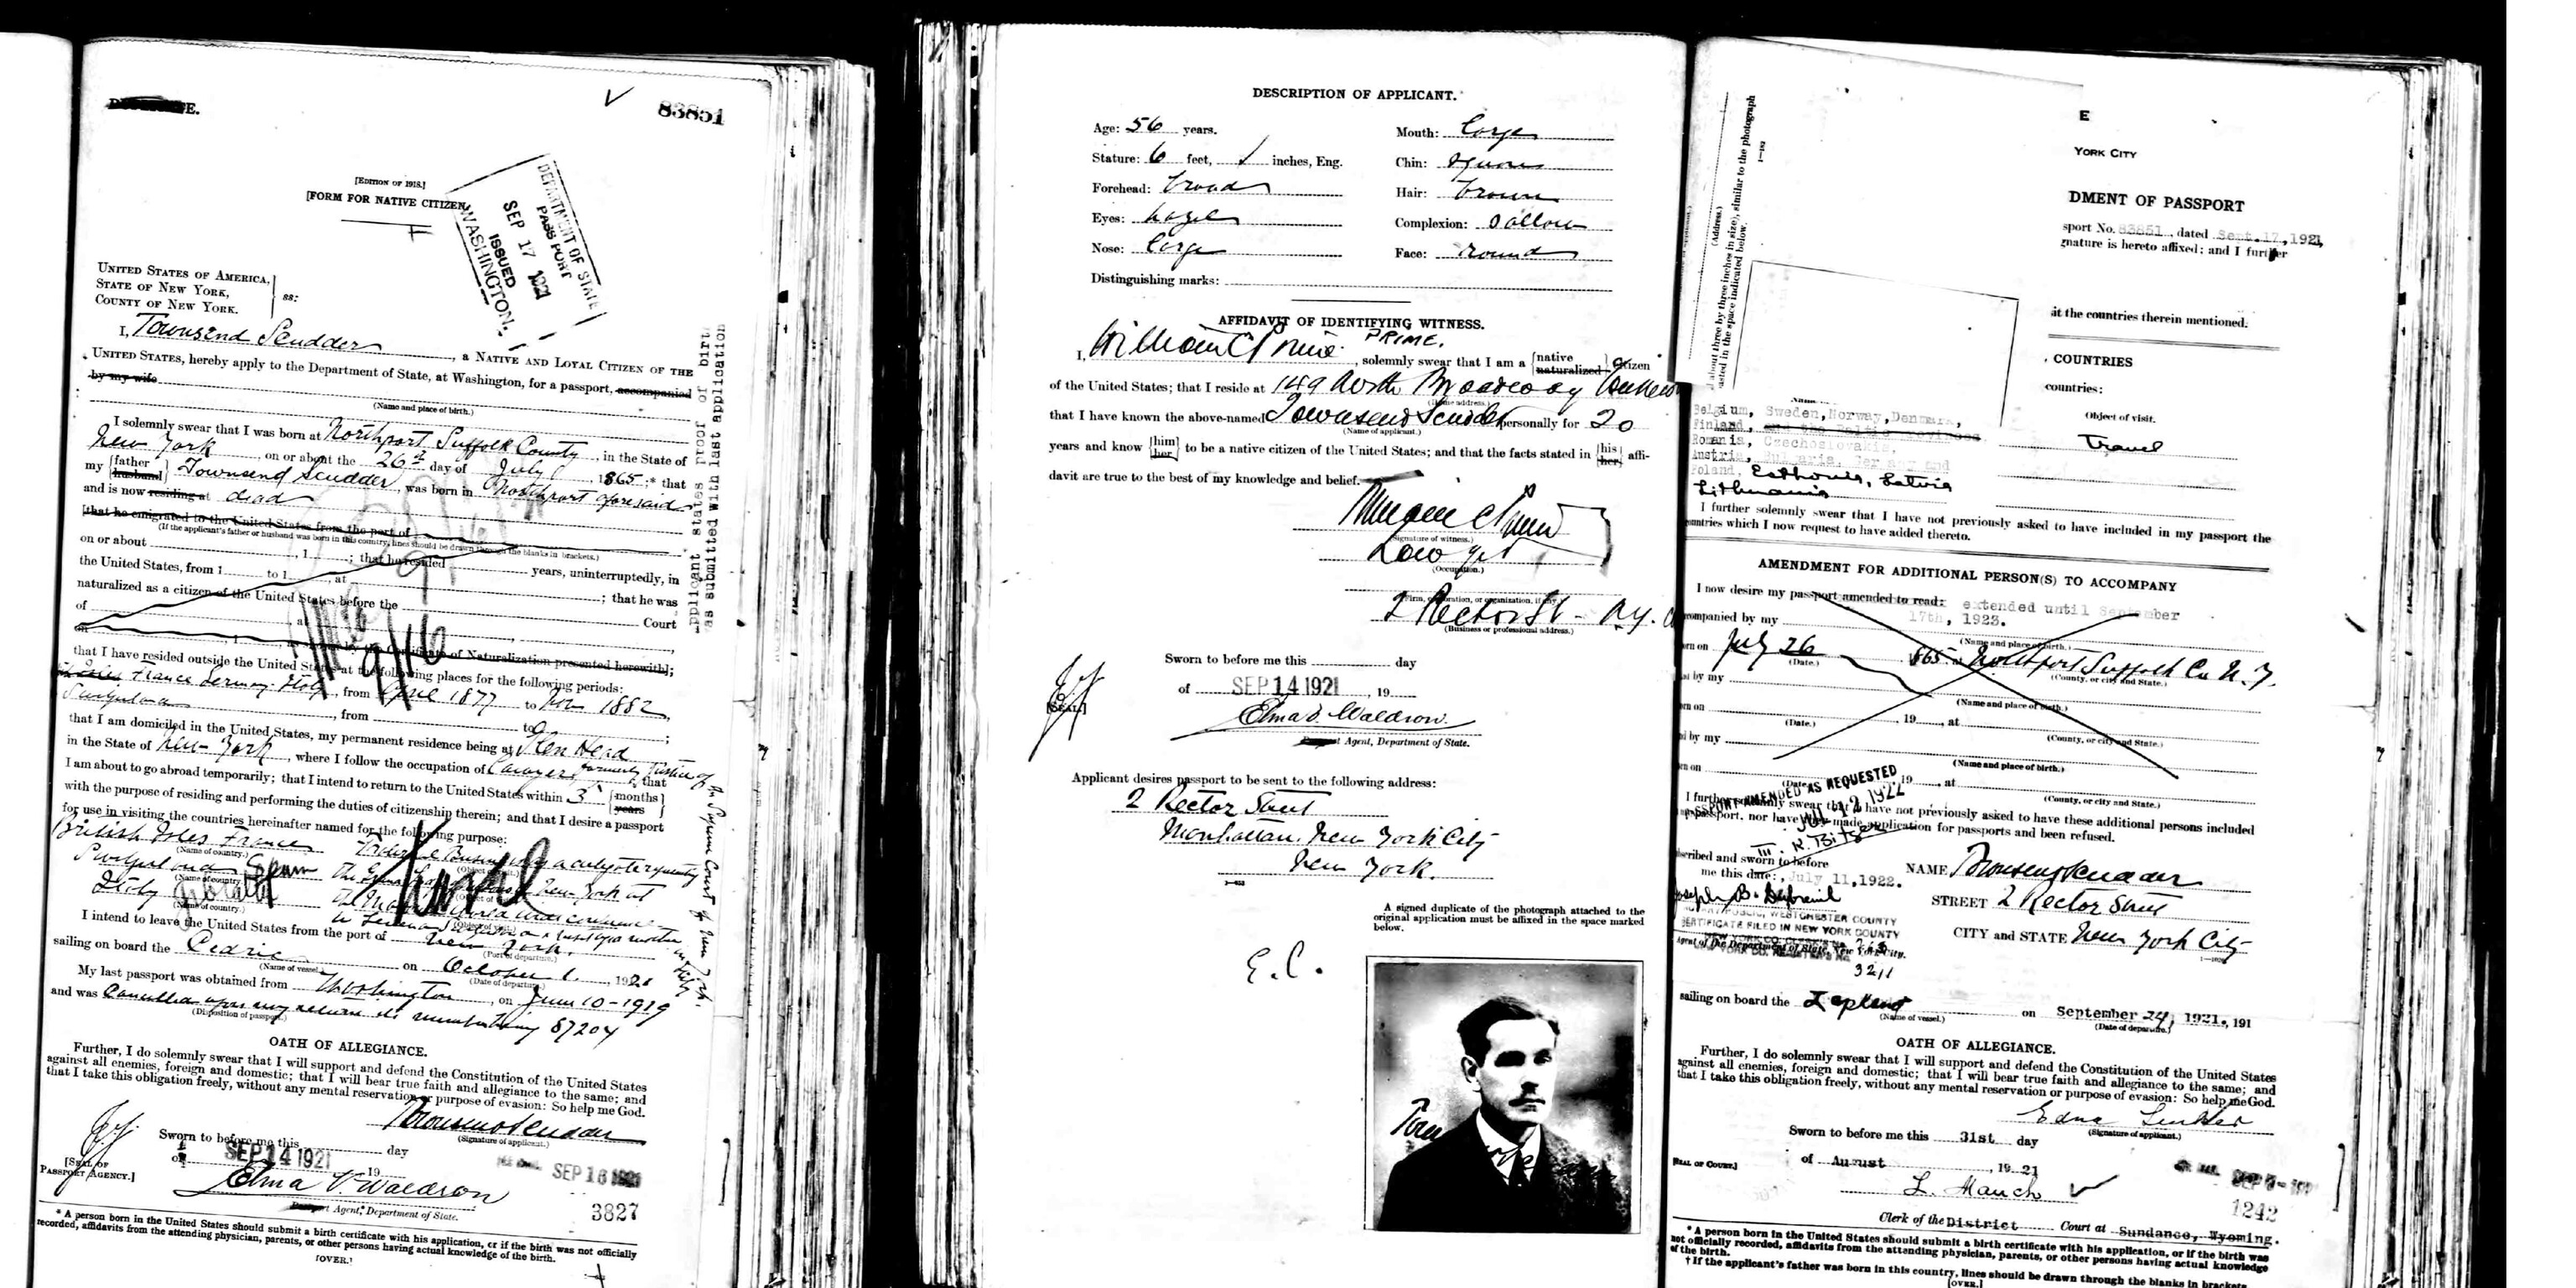 E.
83851
[EDITION OF 1918.]
[FORM FOR NATIVE CITIZEN
DEPARTMENT OF STATE
PASSPORT
SEP 17 1921
ISSUED
WASHINGTON.
UNITED STATES OF AMERICA,
STATE OF NEW YORK,
COUNTY OF NEW YORK.
ss:
I, Townsend Scudder, a NATIVE AND LOYAL CITIZEN OF THE
UNITED STATES, hereby apply to the Department of State, at Washington, for a passport, accompanied
by my wife
(Name and place of birth.)
I solemnly swear that I was born at Northport Suffolk County, in the State of
New York, on or about the 26th day of July, 1865;* that
my {father husband} Townsend Scudder, was born in Northport aforesaid
and is now residing at dead
[that he emigrated to the United States from the port of
(If the applicant's father or husband was born in this country, lines should be drawn through the blanks in brackets.)
on or about , 1 ; that he resided years, uninterruptedly, in
the United States, from 1 to 1 , at ; that he was
naturalized as a citizen of the United States before the Court
of , at ,
on , 1 , as shown by the Certificate of Naturalization presented herewith];
that I have resided outside the United States at the following places for the following periods:
France Germany Italy, from April 1877 to Nov 1882,
Switzerland, from to ;
that I am domiciled in the United States, my permanent residence being at Glen Head
in the State of New York, where I follow the occupation of Lawyer formerly Justice of the Supreme Court of New York; that
I am about to go abroad temporarily; that I intend to return to the United States within 3 {months years}
with the purpose of residing and performing the duties of citizenship therein; and that I desire a passport
for use in visiting the countries hereinafter named for the following purpose:
British Isles France
(Name of country.)
Switzerland Spain
(Name of country.)
Italy
(Name of country.)
I intend to leave the United States from the port of New York
(Port of departure.)
sailing on board the Cedric on October 1, 1921
(Name of vessel.) (Date of departure.)
My last passport was obtained from Washington, on June 10-1919
and was Cancelled upon my return its number being 87204
(Disposition of passport.)
OATH OF ALLEGIANCE.
Further, I do solemnly swear that I will support and defend the Constitution of the United States
against all enemies, foreign and domestic; that I will bear true faith and allegiance to the same; and
that I take this obligation freely, without any mental reservation or purpose of evasion: So help me God.
Townsend Scudder
(Signature of applicant.)
Sworn to before me this day
of SEP 14 1921 , 19
SEP 16 1921
[SEAL OF
PASSPORT AGENCY.]
Elma V. Waldron
Agent, Department of State.
3827
* A person born in the United States should submit a birth certificate with his application, or if the birth was not officially
recorded, affidavits from the attending physician, parents, or other persons having actual knowledge of the birth.
[OVER.]
applicant states proof of birth
as submitted with last application
DESCRIPTION OF APPLICANT.
Age: 56 years. Mouth: Large
Stature: 6 feet, 1 inches, Eng. Chin: square
Forehead: broad Hair: brown
Eyes: hazel Complexion: Sallow
Nose: Large Face: round
Distinguishing marks:
AFFIDAVIT OF IDENTIFYING WITNESS.
PRIME.
I, William C Prime, solemnly swear that I am a {native naturalized} citizen
of the United States; that I reside at 149 North Broadway
(Home address.)
that I have known the above-named Townsend Scudder personally for 20
(Name of applicant.)
years and know {him her} to be a native citizen of the United States; and that the facts stated in {his her} affi-
davit are true to the best of my knowledge and belief.
William C Prime
(Signature of witness.)
Lawyer
(Occupation.)
(Firm, corporation, or organization, if any.)
2 Rector St - N.Y.
(Business or professional address.)
Sworn to before me this day
of SEP 14 1921 , 19
[SEAL.]
Elma V. Waldron
Agent, Department of State.
Applicant desires passport to be sent to the following address:
2 Rector Street
Manhattan, New York City
New York.
A signed duplicate of the photograph attached to the
original application must be affixed in the space marked
below.
E.C.
E
YORK CITY
DMENT OF PASSPORT
sport No. 83851, dated Sept. 17, 1921,
gnature is hereto affixed; and I further
at the countries therein mentioned.
COUNTRIES
countries:
Name Object of visit.
Belgium, Sweden, Norway, Denmark,
Finland, and the Baltic Provinces Travel
Romania, Czechoslovakia,
Austria, Bulgaria, Germany and
Poland, Esthonia, Latvia
Lithuania
I further solemnly swear that I have not previously asked to have included in my passport the
untries which I now request to have added thereto.
AMENDMENT FOR ADDITIONAL PERSON(S) TO ACCOMPANY
I now desire my passport amended to read: extended until September
17th, 1923.
ompanied by my
(Name and place of birth.)
rn on July 26 1865 at Northport Suffolk Co N.Y.
(Date.) (County, or city and State.)
by my
(Name and place of birth.)
rn on , 19 , at
(Date.) (County, or city and State.)
by my
(Name and place of birth.)
rn on , 19 , at
(Date.) (County, or city and State.)
PASSPORT AMENDED AS REQUESTED
JUL 12 1922
I further solemnly swear that I have not previously asked to have these additional persons included
passport, nor have they made application for passports and been refused.
scribed and sworn to before
me this date: July 11, 1922.
NAME Townsend Scudder
STREET 2 Rector Street
CITY and STATE New York City
NOTARY PUBLIC, WESTCHESTER COUNTY
CERTIFICATE FILED IN NEW YORK COUNTY
Agent of the Department of State, New York City.
3211
sailing on board the Lapland on September 24, 1921., 191
(Name of vessel.) (Date of departure.)
OATH OF ALLEGIANCE.
Further, I do solemnly swear that I will support and defend the Constitution of the United States
against all enemies, foreign and domestic; that I will bear true faith and allegiance to the same; and
that I take this obligation freely, without any mental reservation or purpose of evasion: So help me God.
(Signature of applicant.)
Sworn to before me this 31st day
of August, 1921
[SEAL OF COURT.]
L. Hauch
1242
Clerk of the District Court at Sundance, Wyoming.
* A person born in the United States should submit a birth certificate with his application, or if the birth was
not officially recorded, affidavits from the attending physician, parents, or other persons having actual knowledge
of the birth.
† If the applicant's father was born in this country, lines should be drawn through the blanks in brackets.
[OVER.]